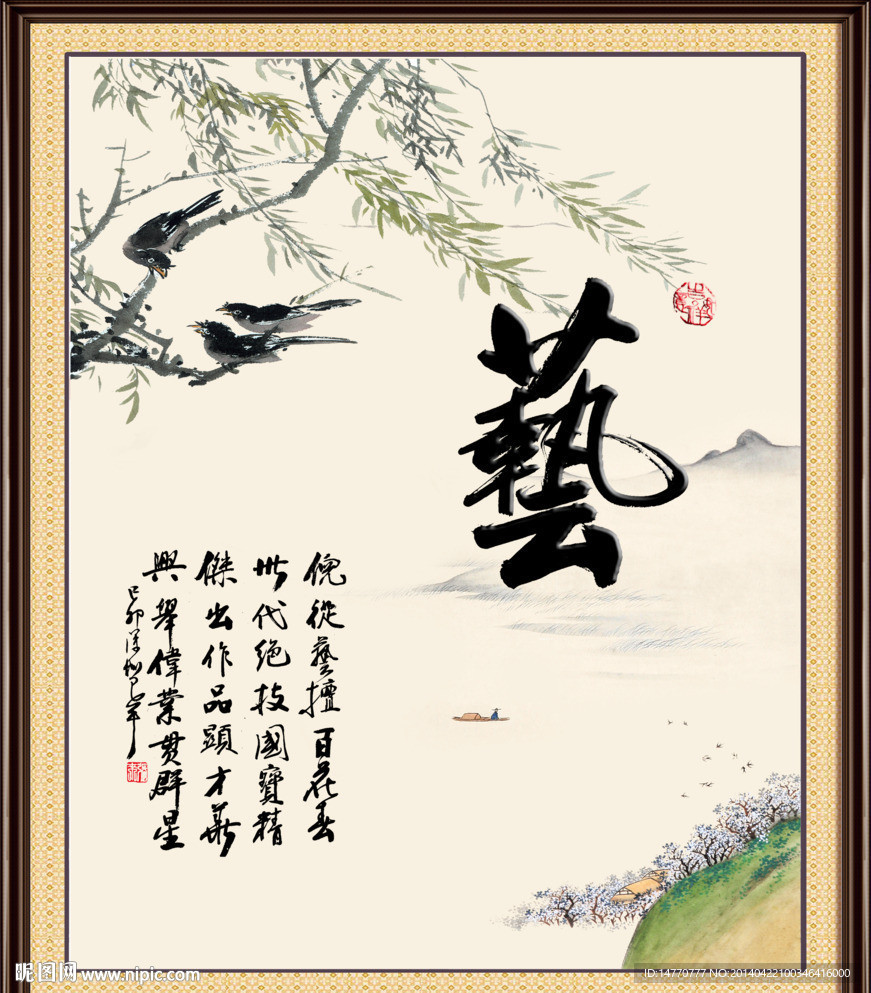 藝
倪從藝擅百花春
世代绝技國寶精
傑出作品顯才華
興舉偉業贯群星
己卯深圳
昵图网 www.nipic.com
ID:14770777 NO:20140422100346416000